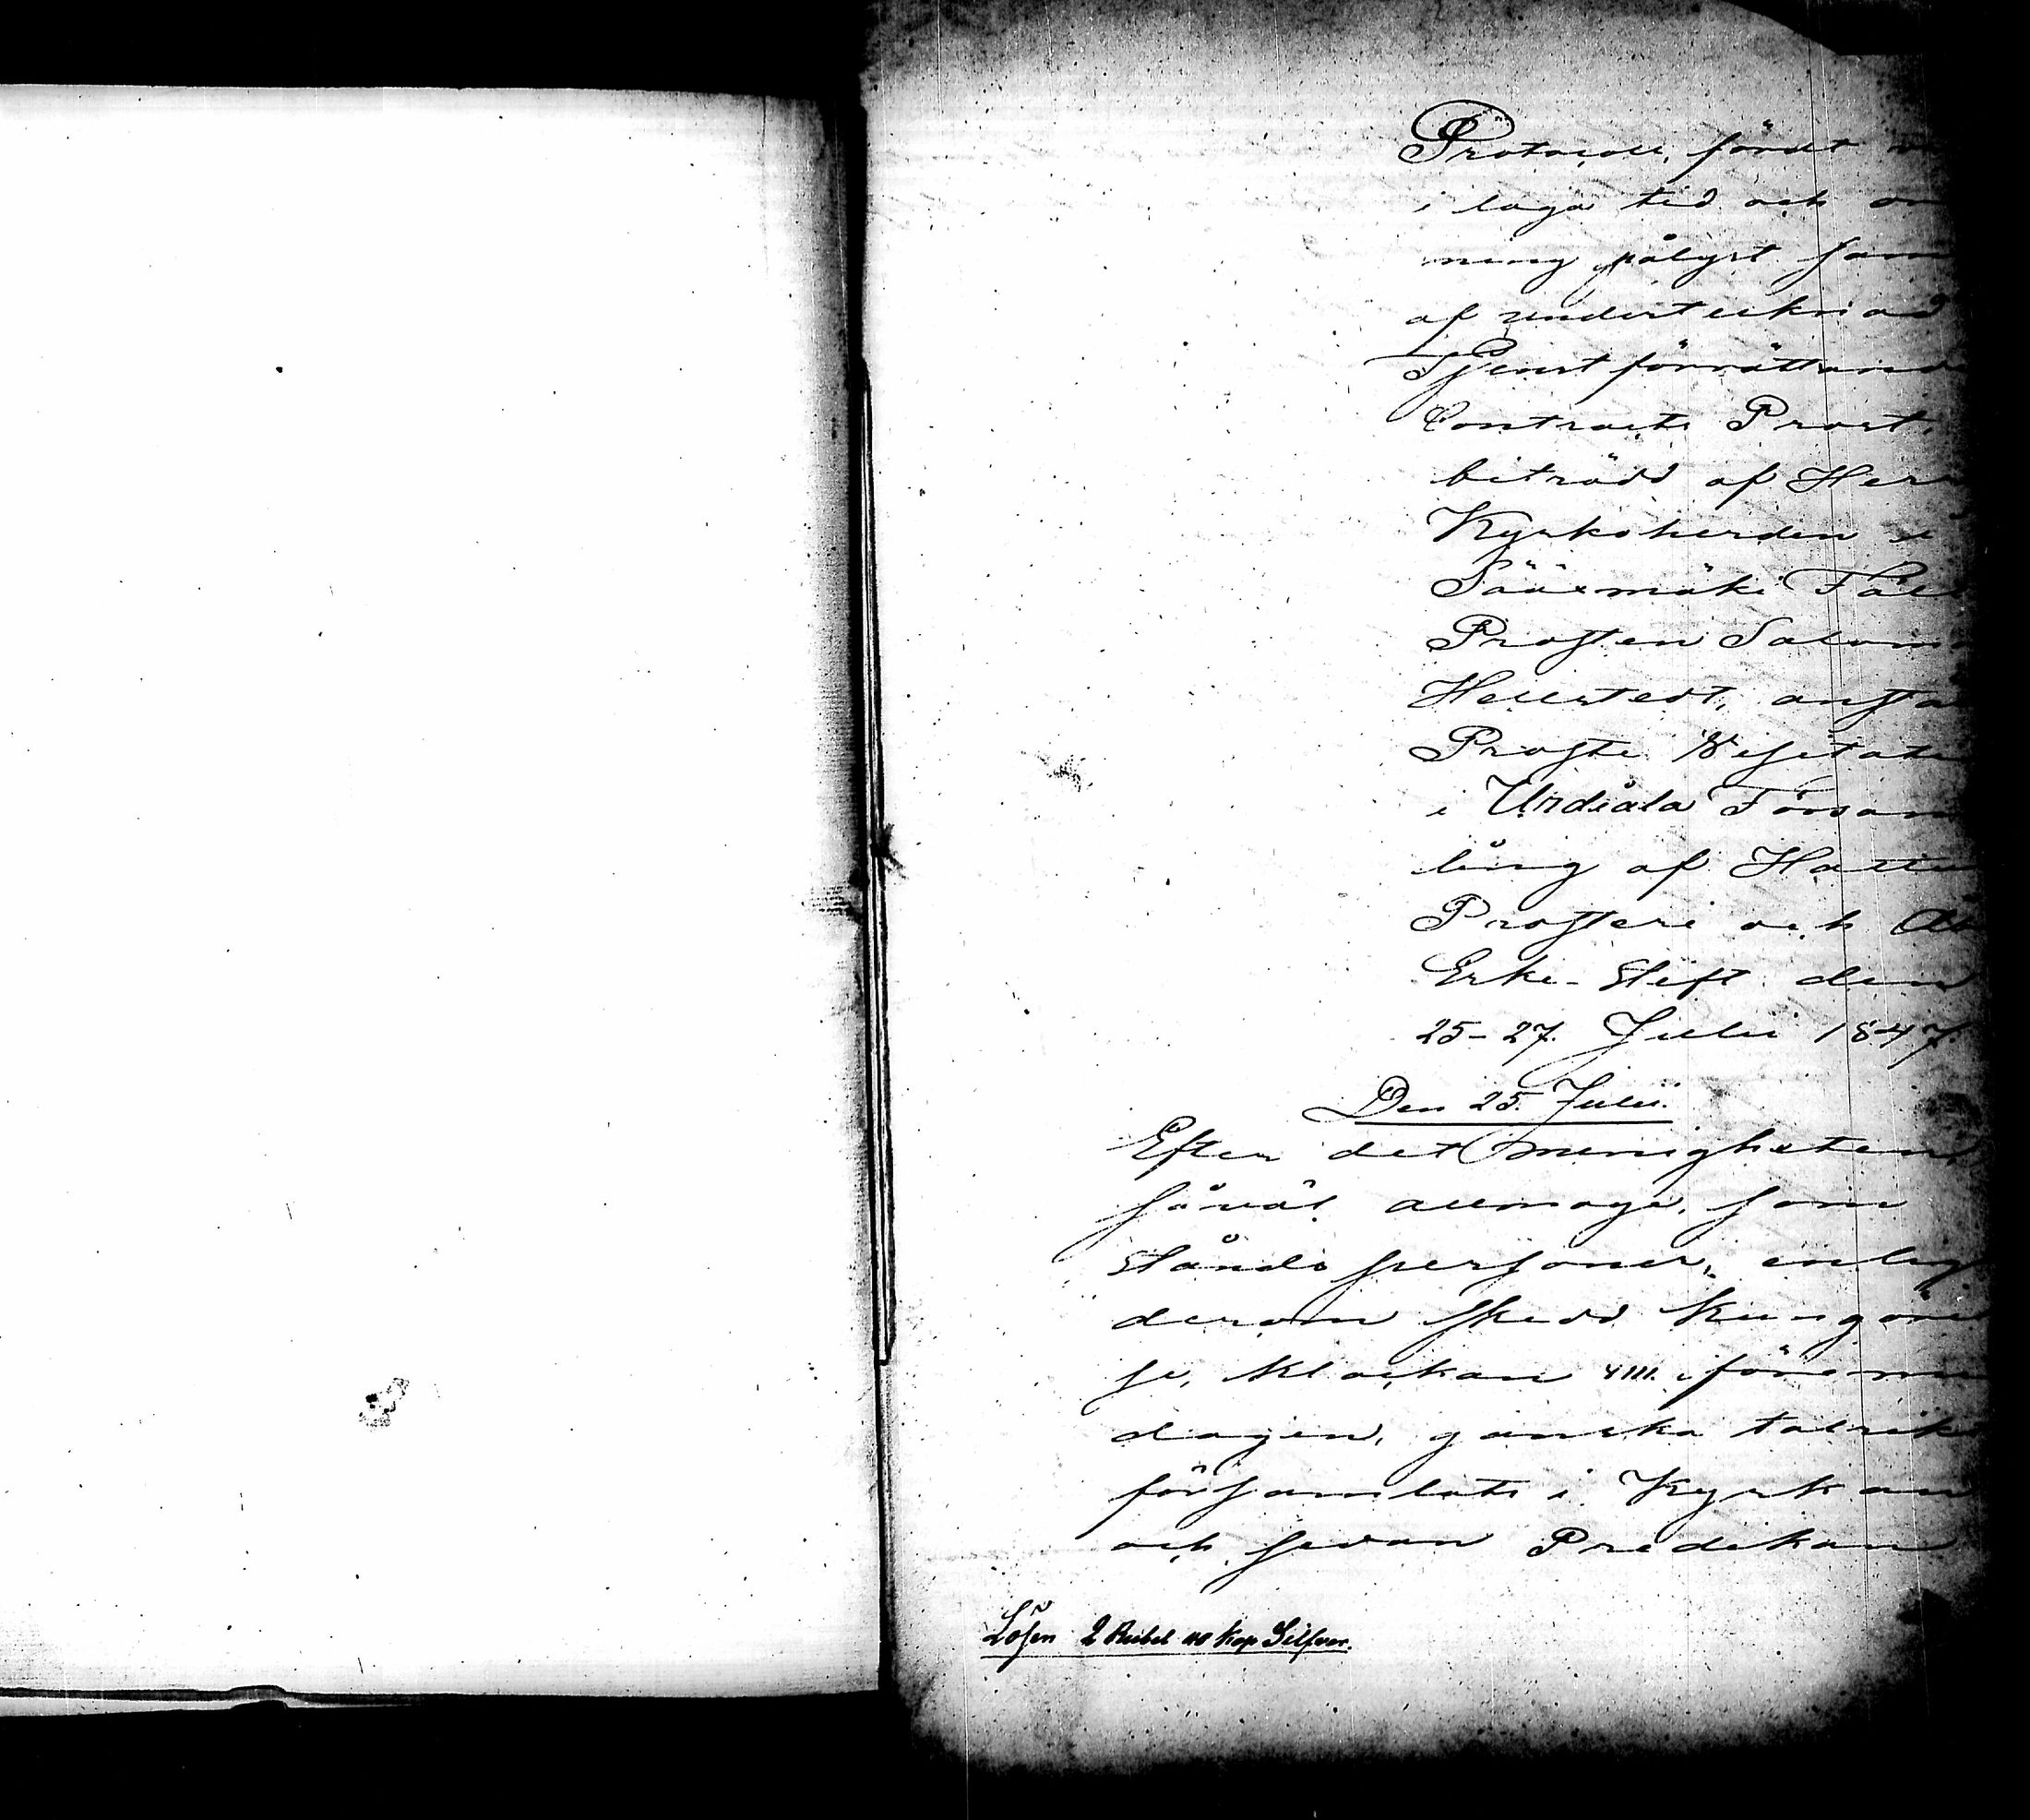 Protocoll, fördt
i laga tid och
ning pålyst
af undertecknad
Tjenstförrättande
Contracts Prost,
biträdd af Herr
Kyrkoherden
Sääxmäki
Prosten
Hellstedt,
Proste Visitat
i Urdiala Försam
ling af
Prosteri och
Erke-Stift den
25-27. Julii 1847.
Den 25. Julii.
Efter det menigheten,
såväl allmoge, som
Ståndspersoner, enligt
derom skedd Kungörel
se, klockan VIII. före mid
dagen, ganska talrikt
församlats i Kyrkan
och sedan Predikan
Lösen 2 Rubel 40 Kop Silfver.